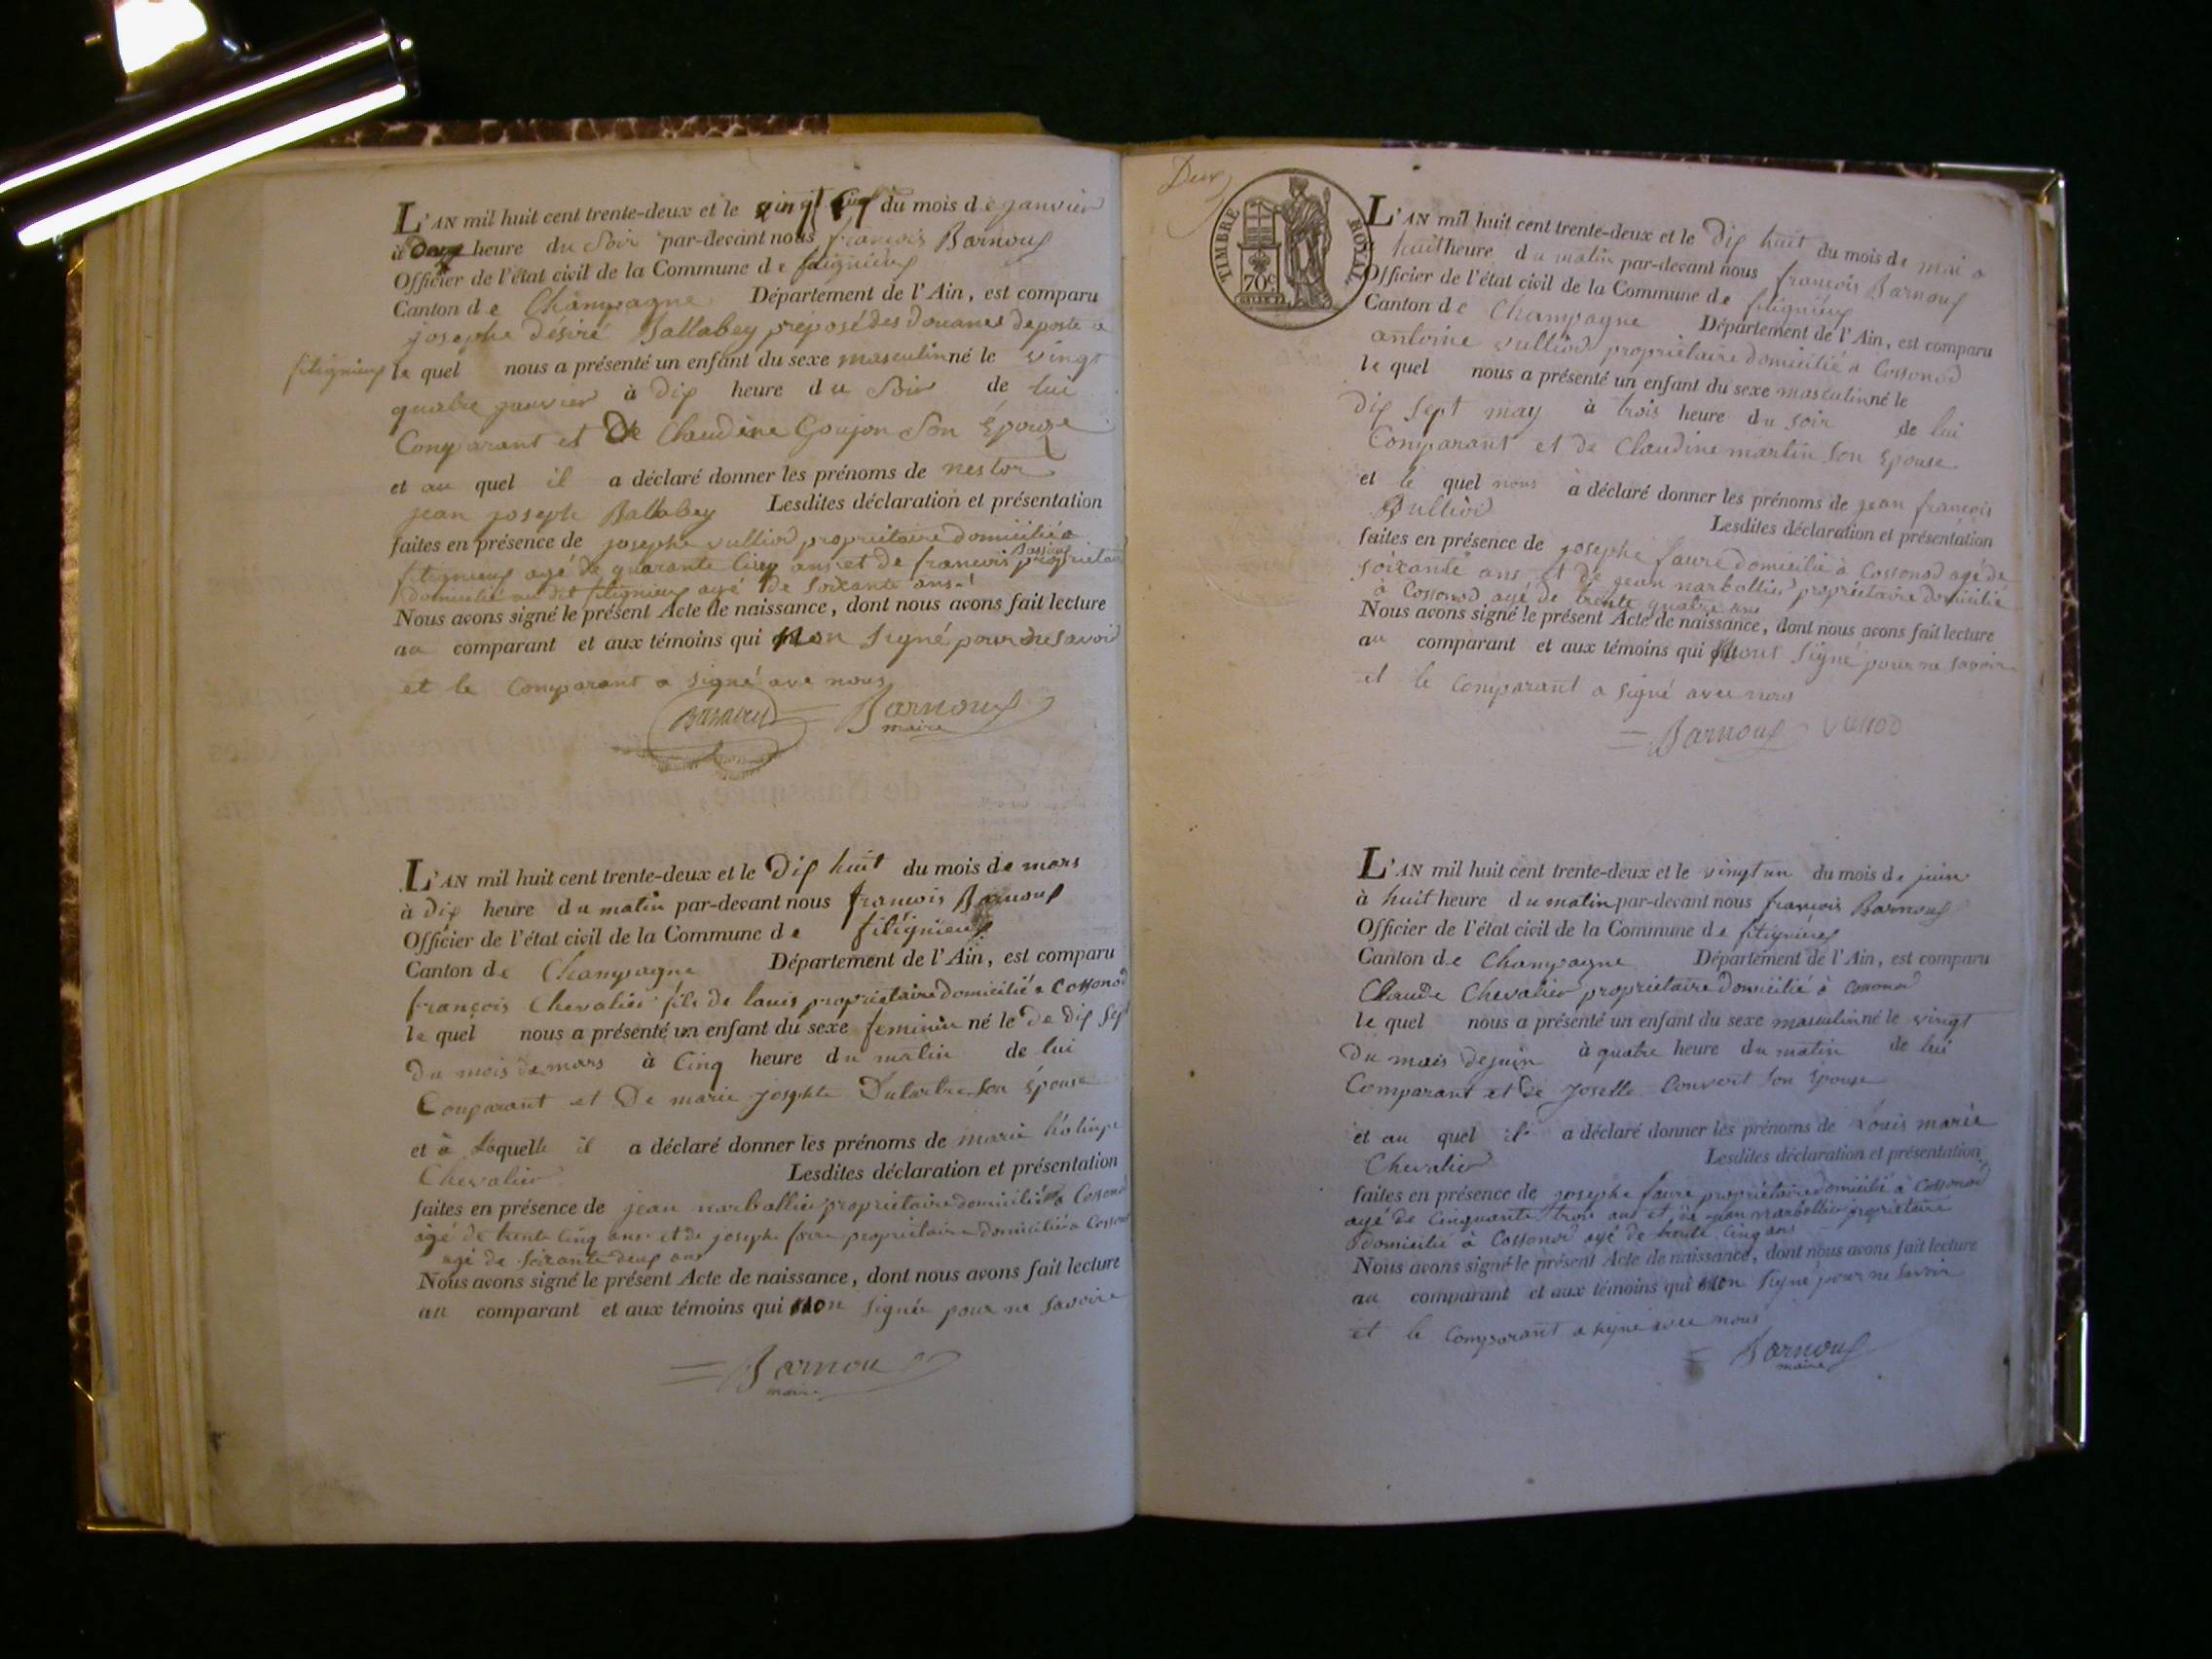 L'AN mil huit cent trente-deux et le vingt du mois de janvier
à heure du soir par-devant nous françois Barnoux
Officier de l'état civil de la Commune de fitignieux
Canton de Champagne Département de l'Ain, est comparu
josephe désiré Ballabey préposé des douanes de poste a
fitignieux le quel nous a présenté un enfant du sexe masculin né le vingt
quatre janvier à dix heure du Soir de lui
Comparant et De Claudine Goujon Son Épouse
et au quel il a déclaré donner les prénoms de nestor
jean joseph Ballabey Lesdites déclaration et présentation
faites en présence de josephe vulliod proprietaire domicilié a
fitignieux agé de quarante Cinq ans et de francois proprietaire
domicilié au dit fitignieux agé de Soixante ans
Nous avons signé le présent Acte de naissance, dont nous avons fait lecture
au comparant et aux témoins qui non signé pour ne savoir
et le Comparant a signé ave nous
Barnoux
maire
L'AN mil huit cent trente-deux et le Dix huit du mois de mars
à dix heure du matin par-devant nous françois Barnoux
Officier de l'état civil de la Commune de fitignieux
Canton de Champagne Département de l'Ain, est comparu
françois Chevalier fils de louis proprietaire domicilié a Cossonod
le quel nous a présenté un enfant du sexe feminin né le De dix Sept
Du mois de mars à Cinq heure du matin de lui
Comparant et De marie josephte Dutartre Son Épouse
et à Laquelle il a déclaré donner les prénoms de marie
Chevalier Lesdites déclaration et présentation
faites en présence de jean narbollier proprietaire domicilié a Cossonod
agé de trente Cinq ans et de joseph favre proprietaire domicilié a Cossonod
agé de Soixante deux ans
Nous avons signé le présent Acte de naissance, dont nous avons fait lecture
au comparant et aux témoins qui non signée pour ne savoire
Barnoux
maire
Deux
TIMBRE ROYAL
70c
L'AN mil huit cent trente-deux et le Dix huit du mois de mai a
huit heure du matin par-devant nous françois Barnoux
Officier de l'état civil de la Commune de fitignieux
Canton de Champagne Département de l'Ain, est comparu
antoine vulliod proprietaire domicilié a Cossonod
le quel nous a présenté un enfant du sexe masculin né le
dix Sept may à trois heure du soir de lui
Comparant et de Claudine martin Son Épouse
et le quel nous a déclaré donner les prénoms de jean francois
Vulliod Lesdites déclaration et présentation
faites en présence de josephe favre domicilié à Cossonod agé de
soixante ans et de jean narbollier proprietaire domicilié
à Cossonod agé de trente quatre ans
Nous avons signé le présent Acte de naissance, dont nous avons fait lecture
au comparant et aux témoins qui nont signé pour ne savoir
et le Comparant a signé avec nous
Barnoux
L'AN mil huit cent trente-deux et le vingt un du mois de juin
à huit heure du matin par-devant nous françois Barnoux
Officier de l'état civil de la Commune de fitignieux
Canton de Champagne Département de l'Ain, est comparu
Claude Chevalier proprietaire domicilié à Cossonod
le quel nous a présenté un enfant du sexe masculin né le vingt
Du mois de juin à quatre heure du matin de lui
Comparant et de Josette Convert Son Épouse
et au quel il a déclaré donner les prénoms de Louis marie
Chevalier Lesdites déclaration et présentation
faites en présence de josephe favre proprietaire domicilié à Cossonod
agé de Cinquante trois ans et de jean narbollier proprietaire
domicilié à Cossonod agé de trente Cinq ans
Nous avons signé le présent Acte de naissance, dont nous avons fait lecture
au comparant et aux témoins qui non signé pour ne savoir
et le Comparant a signé avec nous
Barnoux
maire